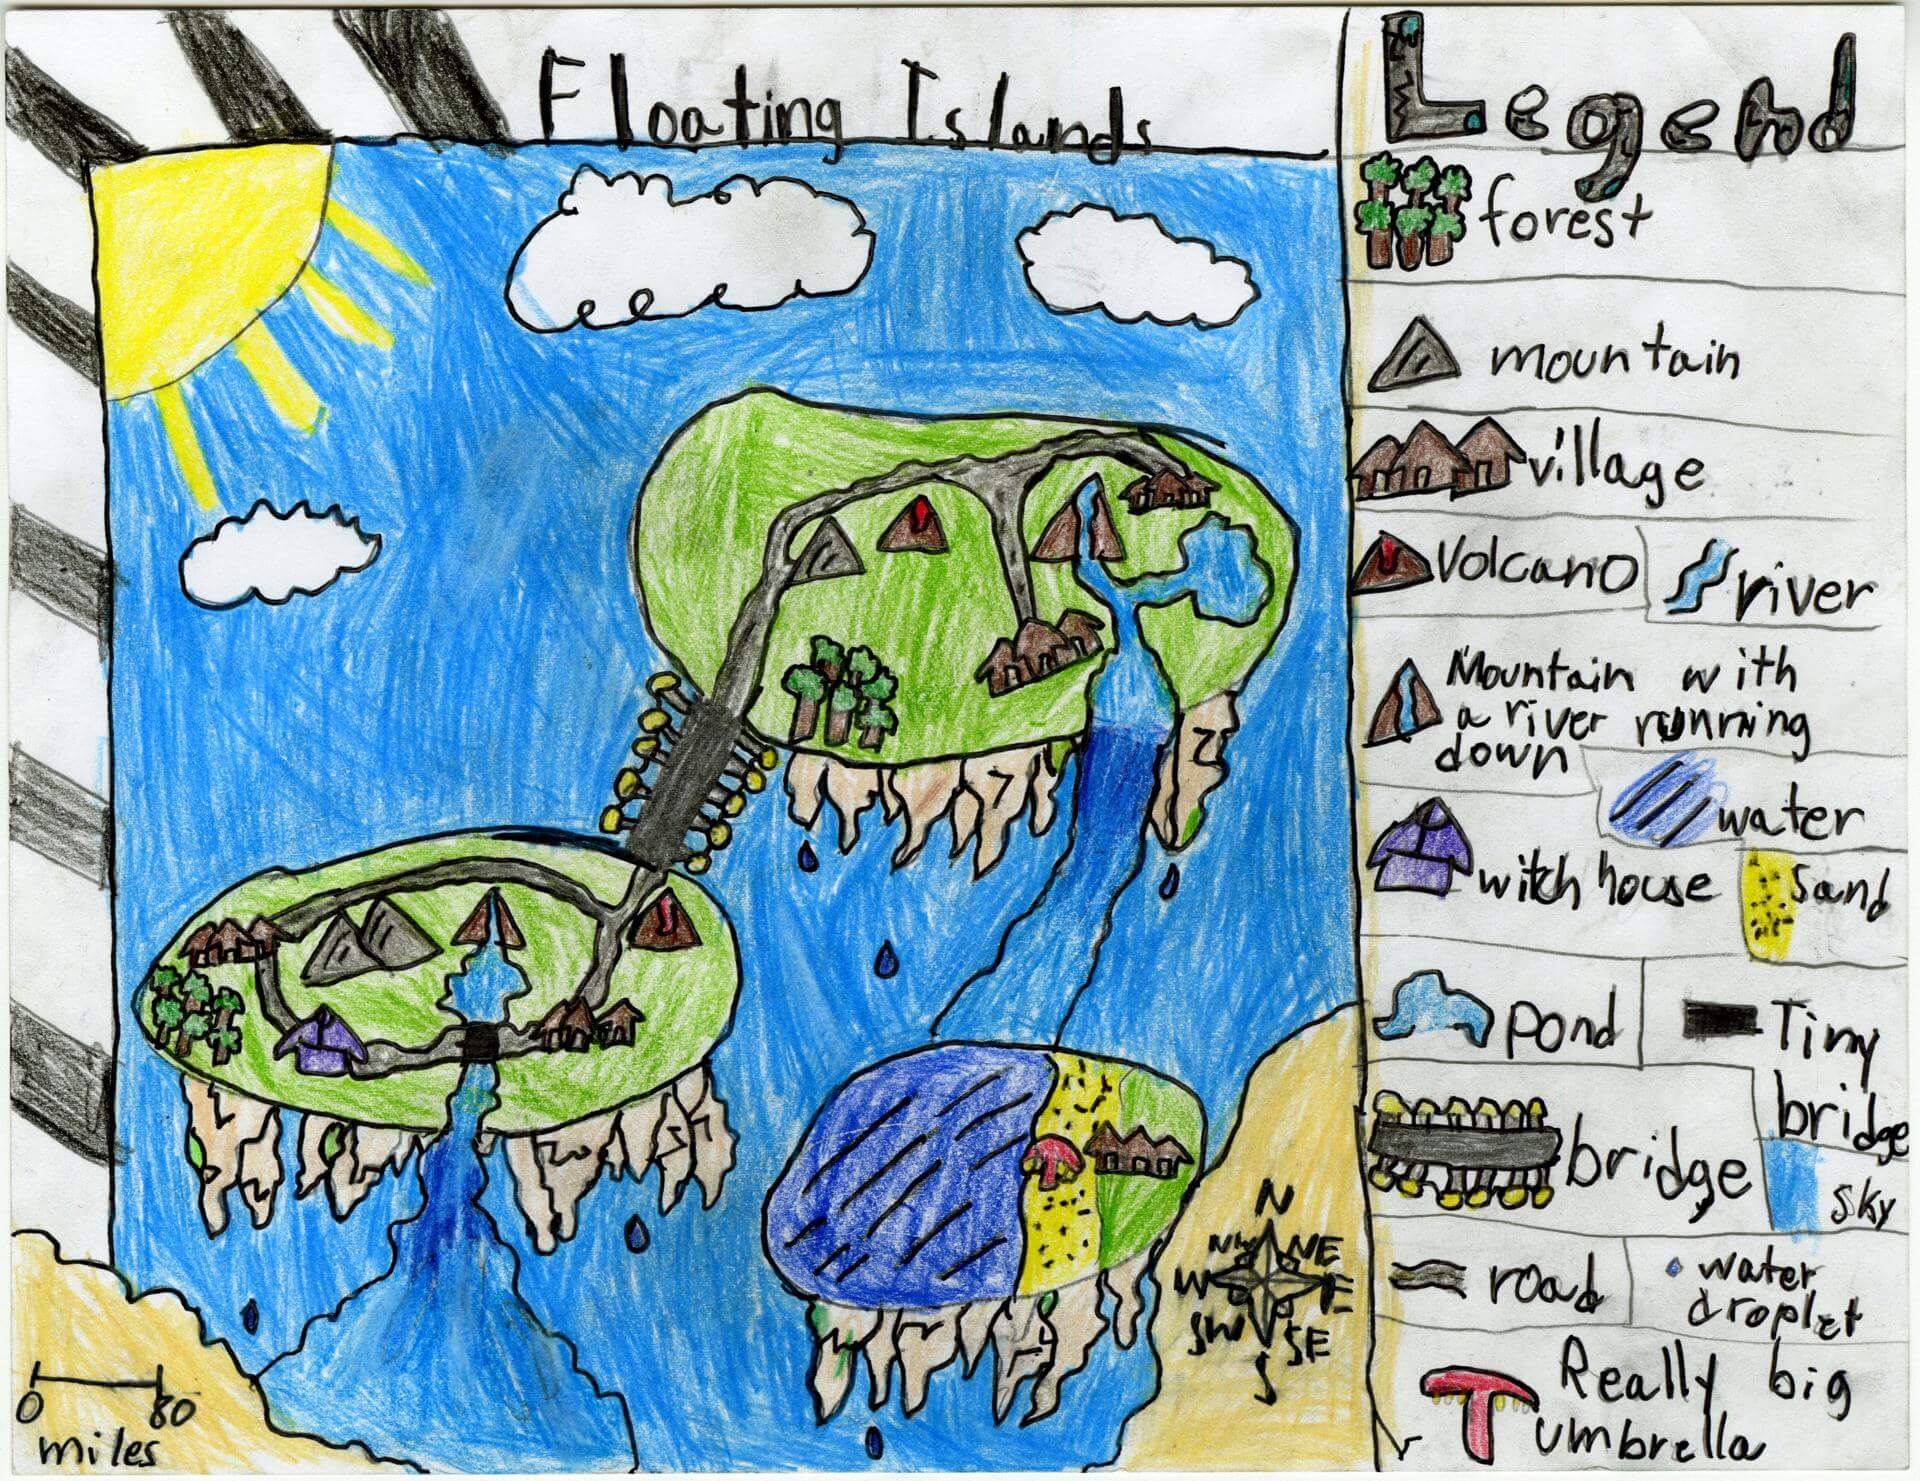 Floating Islands
Legend
forest
mountain
village
Volcano
river
Mountain with
a river running
down
water
witch house
sand
pond
Tiny
bridge
bridge
sky
road
water
droplet
Really big
umbrella
N
NW NE
W E
SW SE
S
0
miles